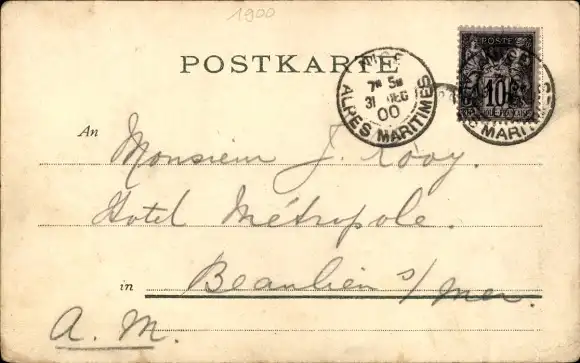 1900
POSTKARTE
NICE
7E 5M
31 DEC
00
ALPES MARITIMES
POSTE
10
MARITIMES
An Monsieur J. Rooy.
Hotel Métropole.
in Beaulieu s/mer.
A. M.